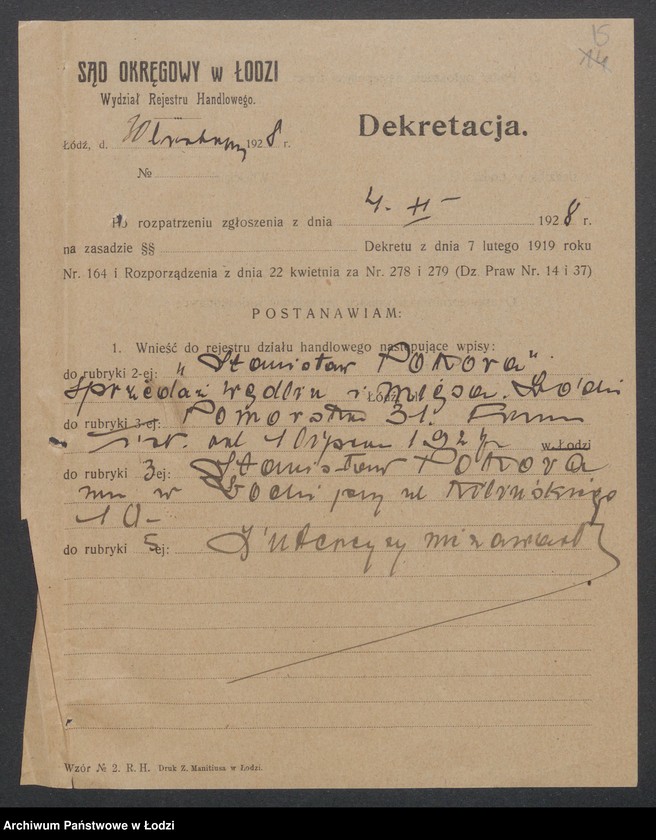 15
14
SĄD OKRĘGOWY w ŁODZI
Wydział Rejestru Handlowego.
Dekretacja.
Łódź, d. 30 1928 r.
№
Po rozpatrzeniu zgłoszenia z dnia 4. II - 1928 r.
na zasadzie §§ Dekretu z dnia 7 lutego 1919 roku
Nr. 164 i Rozporządzenia z dnia 22 kwietnia za Nr. 278 i 279 (Dz. Praw Nr. 14 i 37)
POSTANAWIAM:
1. Wnieść do rejestru działu handlowego następujące wpisy:
do rubryki 2-ej: „Stanisław Pokora".
Sprzedaż wędlin i mięsa. Łódź
do rubryki 3-ej: Pomorska 31. Firma
istn. od 1 lipca 1927 r. w Łodzi
do rubryki 3 ej: Stanisław Pokora
zam w Łodzi przy ul Kilińskiego
10-
do rubryki 5 ej: Intercyzy nie zawarł
Wzór № 2. R. H. Druk Z. Manitiusa w Łodzi.
Archiwum Państwowe w Łodzi